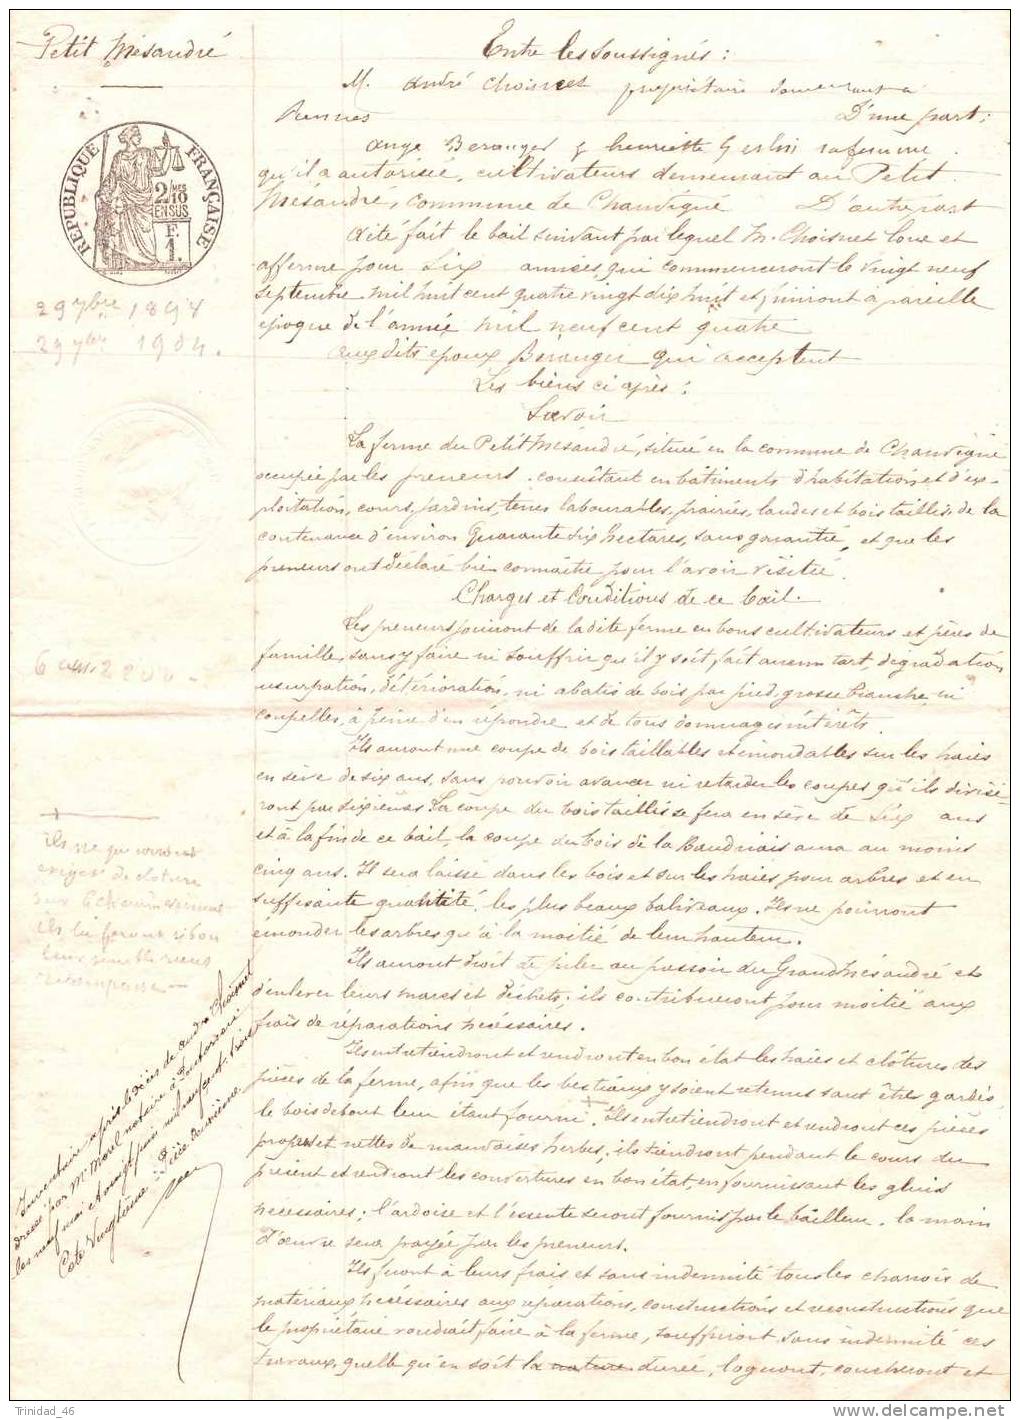 Petit Mésandré
RÉPUBLIQUE FRANÇAISE
2/10 MES
EN SUS
F.
1.
29 7bre 1898
29 7bre 1904.
6 ans. 2200
Entre les Soussignés :
M. André Choisnet propriétaire demeurant à
Rennes D'une part ;
Ange Beranger & henriette sa femme
qu'il a autorisée, cultivateurs demeurant au Petit
Mésandré, commune de Chauvigné D'autre part
A été fait le bail suivant par lequel M. Choisnet loue et
afferme pour Six années, qui commenceront le vingt neuf
septembre mil huit cent quatre vingt dix huit et finiront à pareille
époque de l'année mil neuf cent quatre
aux dits époux Béranger qui acceptent
Les biens ci après :
Savoir
La ferme du Petit Mésandré, située en la commune de Chauvigné
occupée par les preneurs. consistant en bâtiments d'habitation et d'ex-
ploitation, cours, jardins, terres labourables, prairies, landes et bois taillis, de la
contenance d'environ Quarante six hectares, sans garantie, et que les
preneurs ont déclaré bien connaître pour l'avoir visitée.
Charges et Conditions de ce bail.
Les preneurs jouiront de la dite ferme en bons cultivateurs et pères de
famille, sans y faire ni souffrir qu'il y soit fait aucun tort, dégradation,
usurpation, détérioration, ni abatis de bois par pied, grosse branche, ni
coupelles, à peine d'en répondre et de tous dommages intérêts.
Ils auront une coupe de bois taillables et émondables sur les haies
en sève de six ans, sans pouvoir avancer ni retarder les coupes qu'ils divise-
ront par sixièmes. La coupe du bois taillis se fera en sève de Six ans
et à la fin de ce bail, la coupe du bois de la Baudriais aura au moins
cinq ans. Il sera laissé dans les bois et sur les haies pour arbres et en
suffisante quantité, les plus beaux baliveaux. Ils ne pourront
émonder les arbres qu'à la moitié de leur hauteur.
Ils auront droit de piler au pressoir du Grand Mésandré et
d'enlever leurs marcs et déchets ; ils contribueront pour moitié aux
frais de réparations nécessaires.
Ils entretiendront et rendront en bon état les haies et clôtures des
pièces de la ferme, afin que les bestiaux y soient retenus sans être gardés,
le bois debout leur étant fourni. + Ils entretiendront et rendront ces pièces
propres et nettes de mauvaises herbes ; ils tiendront pendant le cours du
présent et rendront les couvertures en bon état, en fournissant les gluis
nécessaires ; l'ardoise et l'essente seront fournis par le bailleur. la main
d'œuvre sera payée par les preneurs.
Ils feront à leurs frais et sans indemnité tous les charrois de
matériaux nécessaires aux réparations, constructions et reconstructions que
le propriétaire voudrait faire à la ferme, souffriront sans indemnité ces
travaux, quelle qu'en soit la nature durée, logeront, coucheront et
+
ils ne pourront
exiger de cloture
sur
ils la feront si bon
leur semble sans
récompense
Inventaire après le décès de André Choisnet
dressé par Me Morel notaire à
les neuf mai et vingt juin mil neuf cent trois
Cote Vingtième. Pièce deuxième
Trinidad_46
delcampe.net